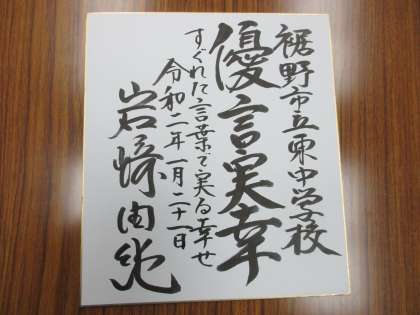 裾野市立東中学校
優言実幸
すぐれた言葉で実る幸せ
令和二年一月二十一日
岩崎由純